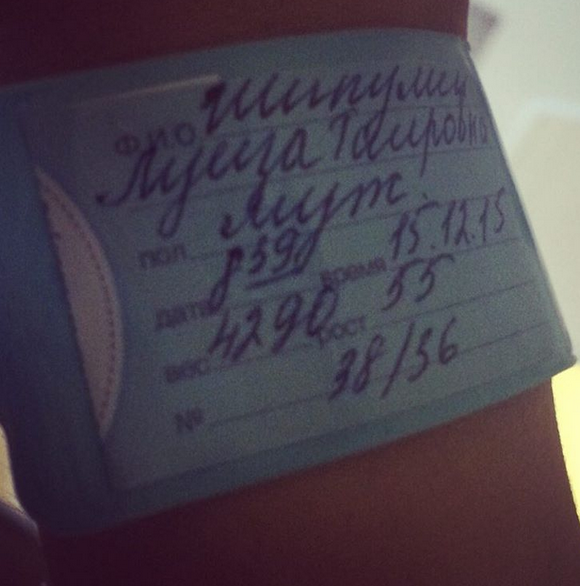 Ф.И.О. Шипулин
Луиза Таировна
пол муж.
дата 8 39 время 15.12.15
вес 4290 рост 55
№ 38/36